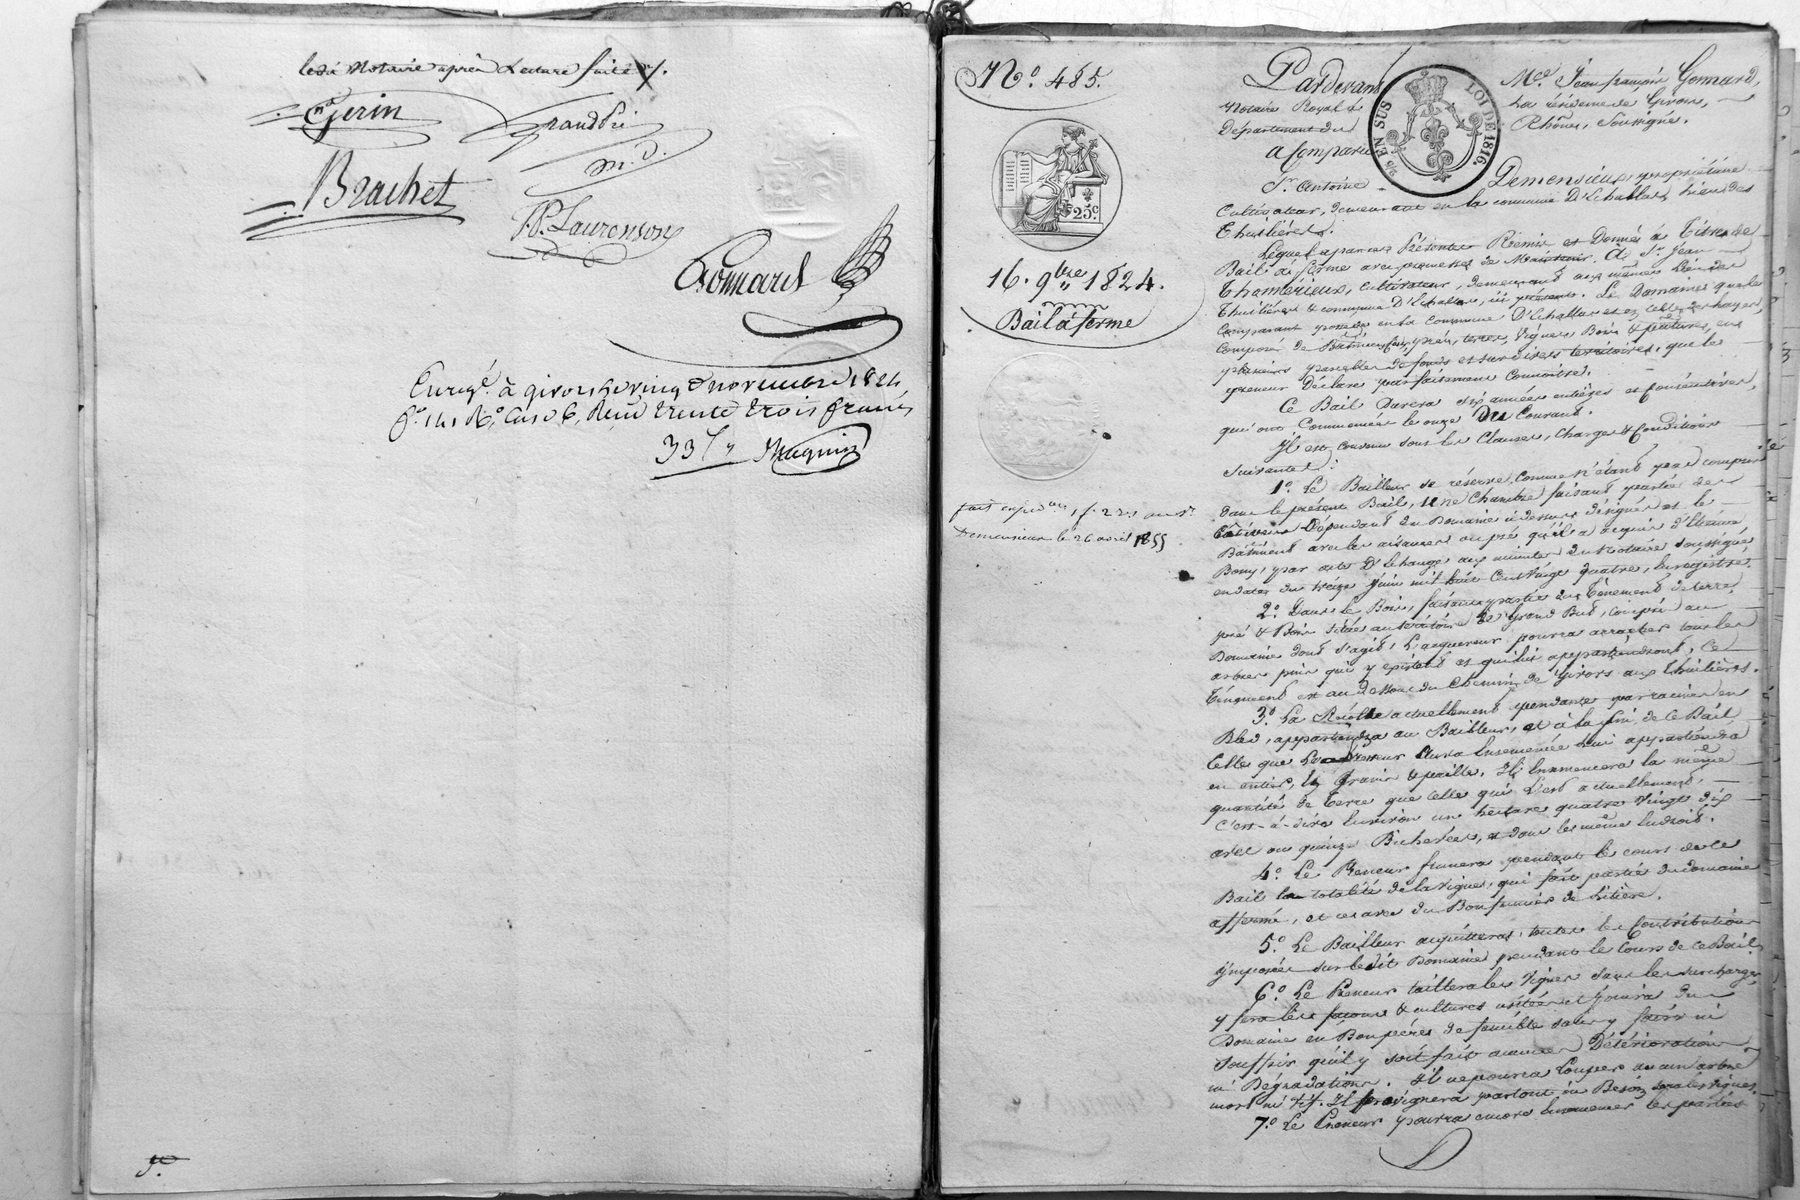 ledit Notaire après Lecture faite /.
Gerin
Grand Pré
m. d.
Brachet
J. P. Laurenson
Gonnard
Enregé. à givors le vingt novembre 1824
fo. 141 Ro, Case 6, Reçu trente trois francs
33f Magnin
No. 485.
25c
16. 9bre 1824.
Bail à ferme
fait expedon, f. 22, au Sr
Demensieux le 26 avril 1855
2/10 EN SUS LOI DE 1816.
Pardevant Mee Jean françois Gonnard,
Notaire Royal à la résidence de Givors,
Département du Rhône, Soussigné.
a Comparu
Sr. Antoine Demensieux, propriétaire
Cultivateur, demeurant en la commune D'Echallas, lieu des
Thuilières.
Lequel a par ces Présentes Remis et Donné à Titre de
Bail à ferme avec promesse de Maintenir. A Sr. Jean
Thomérieux, Cultivateur, demeurant aux mêmes lieu des
Thuilières & commune D'Echallas, ici présent. Le Domaine que le
Comparant possède en la Commune D'Echallas et en celle de
Composé de Bâtiments, prés, terres, Vignes, Bois & pâtures, en
plusieurs parcelles de fonds et sur divers territoires, que le
preneur Déclare parfaitement Connoître.
Ce Bail Durera six années entières et consécutives,
qui ont Commencées le onze Du Courant.
Il est convenu sous les Clauses, Charges & Conditions
Suivantes :
1o. Le Bailleur se réserve, Comme N'étant pas compris
dans le présent Bail, une Chambre faisant partie des
Bâtiments Dépendant du Domaine ci dessus désigné et le
Bâtiment avec les aisances au pré qu'il a acquis d'Etienne
Bony, par acte D'Echange aux minutes du Notaire soussigné,
en date du treize Juin mil huit Cent Vingt quatre, Enregistré.
2o. Dans le Bois, faisant partie du Tènement de terre,
pré & Bois situé au territoire de Grand But, compris au
Domaine dont s'agit, L'acquereur pourra arracher tous les
arbres pins qui y existent et qui lui appartiendront, Ce
Tènement est au dessous du Chemin de Givors aux Thuilières.
3o. La Récolte actuellement pendante par racines en
Bled, appartiendra au Bailleur, et à la fin de ce Bail
Celle que Le Preneur aura Ensemencée lui appartiendra
en entier, En Grain & paille. Il Ensemencera la même
quantité de Terre que Celle qui L'est actuellement,
C'est-à-dire Environ un hectare quatre Vingt dix
ares ou quinze Bicherées, et dans les même Endroit.
4o. Le Preneur fumera pendant le cours de ce
Bail la totalité de la vigne, qui fait partie du domaine
affermé, et ce avec du Bon fumier de Litière.
5o. Le Bailleur acquittera toutes les Contributions
imposées sur le dit Domaine pendant le Cours de ce Bail.
6o. Le Preneur taillera les Vignes sans les surcharger,
y fera les façons & cultures usitées et Jouira du
Domaine en Bon père de famille sans y faire ni
Souffrir qu'il y soit fait aucune Détérioration
ni Dégradations. Il ne pourra Couper aucun arbre
mort ni vif. Il provignera partout où Besoin sera les vignes
7o. Le Preneur pourra encore Ensemencer les parties